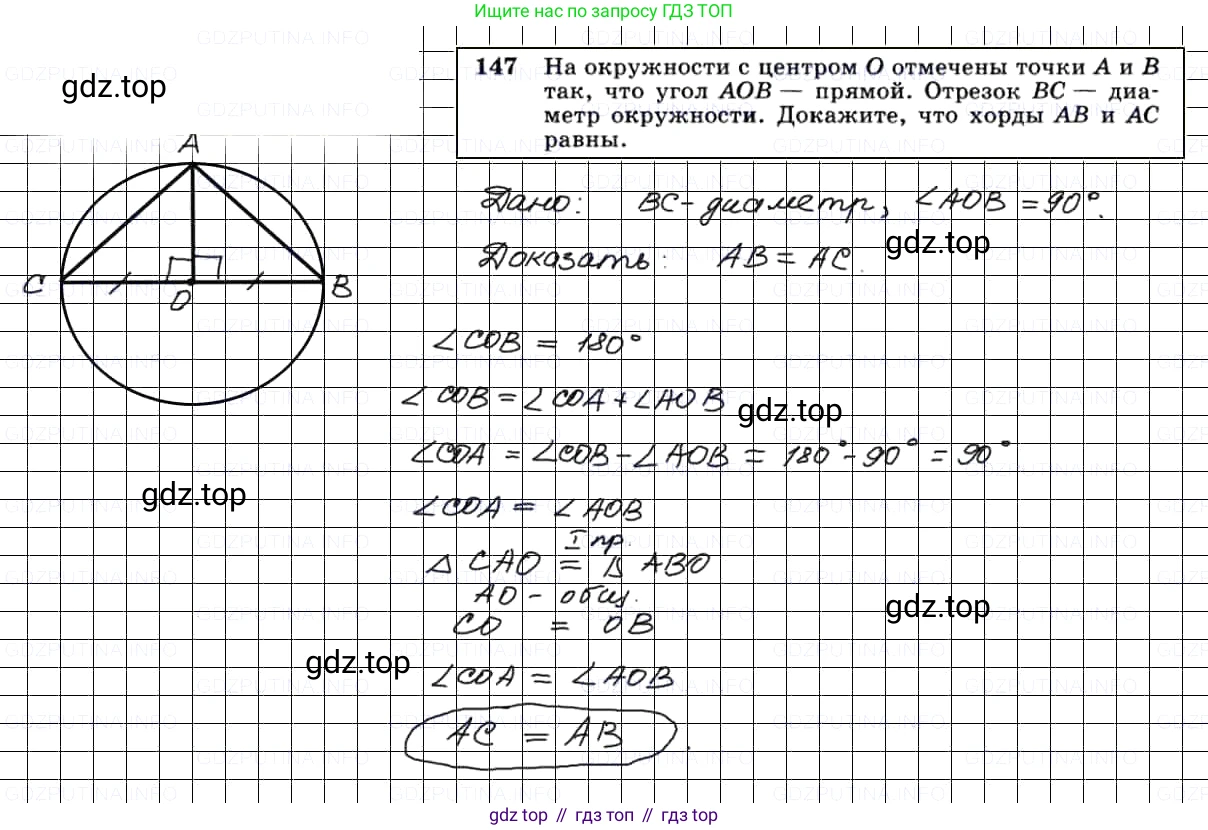 Ищите нас по запросу ГДЗ ТОП
147 На окружности с центром O отмечены точки A и B
так, что угол AOB — прямой. Отрезок BC — диа-
метр окружности. Докажите, что хорды AB и AC
равны.
gdz.top
A
C
O
B
Дано: BC - диаметр, ∠AOB = 90°.
gdz.top
Доказать: AB = AC.
∠COB = 180°
∠COB = ∠COA + ∠AOB
gdz.top
∠COA = ∠COB - ∠AOB = 180° - 90° = 90°
gdz.top
∠COA = ∠AOB
I пр.
△ CAO = △ ABO
AO - общ.
gdz.top
CO = OB
gdz.top
∠COA = ∠AOB
AC = AB.
GDZPUTINA.INFO
gdz top // гдз топ // гдз top